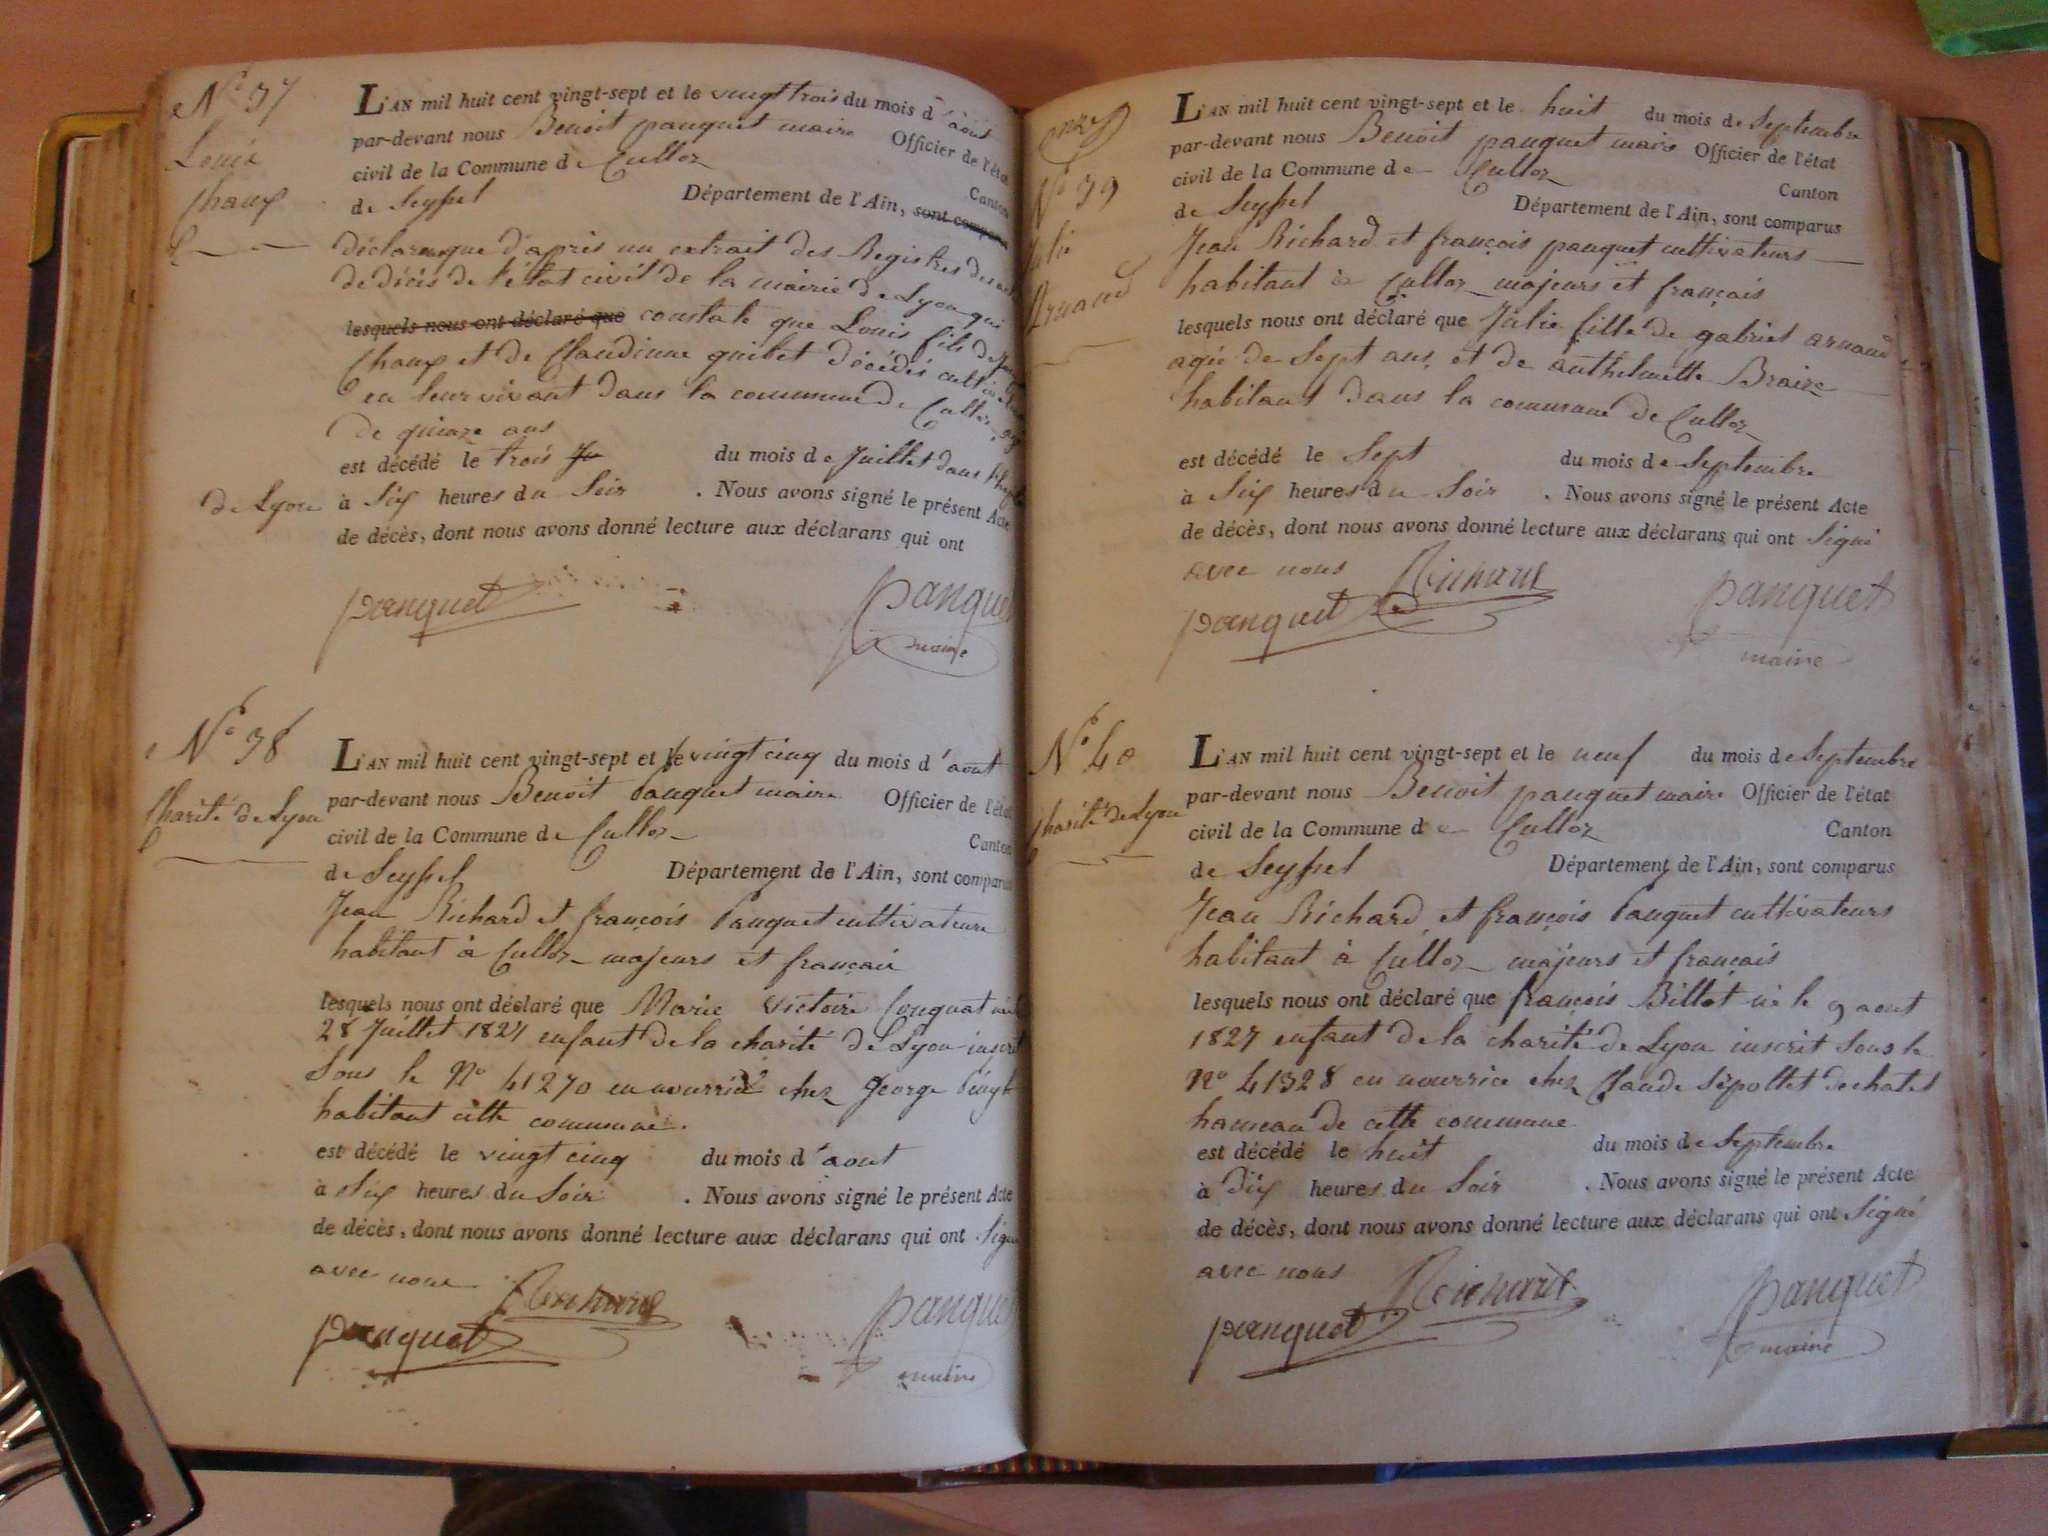 No 37
Louis
Chaux
L'AN mil huit cent vingt-sept et le vingt trois du mois d'aout
par-devant nous Benoit panquet maire Officier de l'état
civil de la Commune de Culloz Canton
de Seyssel Département de l'Ain, sont compa
déclarons que d'après un extrait des Registres des
de décès de l'état civil de la mairie de Lyon qui
lesquels nous ont déclaré que constate que Louis fils de
Chaux et de Claudinne guibet décédés
en leur vivant dans la commune de Culloz
de quinze ans
est décédé le trois Ju du mois de Juillet dans
de Lyon à Six heures du Soir . Nous avons signé le présent Acte
de décès, dont nous avons donné lecture aux déclarans qui ont
panquet panquet
maire
No 38
Charité de Lyon
L'AN mil huit cent vingt-sept et le vingt cinq du mois d'aout
par-devant nous Benoit Panquet maire Officier de l'état
civil de la Commune de Culloz Canton
de Seyssel Département de l'Ain, sont comparus
Jean Richard et françois Panquet cultivateurs
habitant à Culloz majeurs et français
lesquels nous ont déclaré que Marie Victoire
28 Juillet 1827 enfant de la charité de Lyon inscrit
Sous le No 41270 en nourrice chez George
habitant cette commune.
est décédé le vingt cinq du mois d'aout
à Six heures du Soir . Nous avons signé le présent Acte
de décès, dont nous avons donné lecture aux déclarans qui ont Signé
avec nous Richard
panquet panquet
maire
onze
No 39
Julie
Arnaud
L'AN mil huit cent vingt-sept et le huit du mois de Septembre
par-devant nous Benoit panquet maire Officier de l'état
civil de la Commune de Culloz Canton
de Seyssel Département de l'Ain, sont comparus
Jean Richard et françois panquet cultivateurs
habitant à Culloz majeurs et français
lesquels nous ont déclaré que Julie fille de gabriel arnaud
agée de Sept ans et de anthelmette Braize
habitant dans la commune de Culloz
est décédé le Sept du mois de Septembre
à Six heures du Soir . Nous avons signé le présent Acte
de décès, dont nous avons donné lecture aux déclarans qui ont Signé
avec nous Richard
panquet panquet
maire
No 40
Charité de Lyon
L'AN mil huit cent vingt-sept et le neuf du mois de Septembre
par-devant nous Benoit panquet maire Officier de l'état
civil de la Commune de Culloz Canton
de Seyssel Département de l'Ain, sont comparus
Jean Richard et françois Panquet cultivateurs
habitant à Culloz majeurs et français
lesquels nous ont déclaré que françois Billot né le 9 aout
1827 enfant de la charité de Lyon inscrit Sous le
No 41328 en nourrice chez Claude Sepollet de chatel
hameau de cette commune
est décédé le huit du mois de Septembre
à dix heures du Soir . Nous avons signé le présent Acte
de décès, dont nous avons donné lecture aux déclarans qui ont Signé
avec nous Richard
panquet panquet
maire